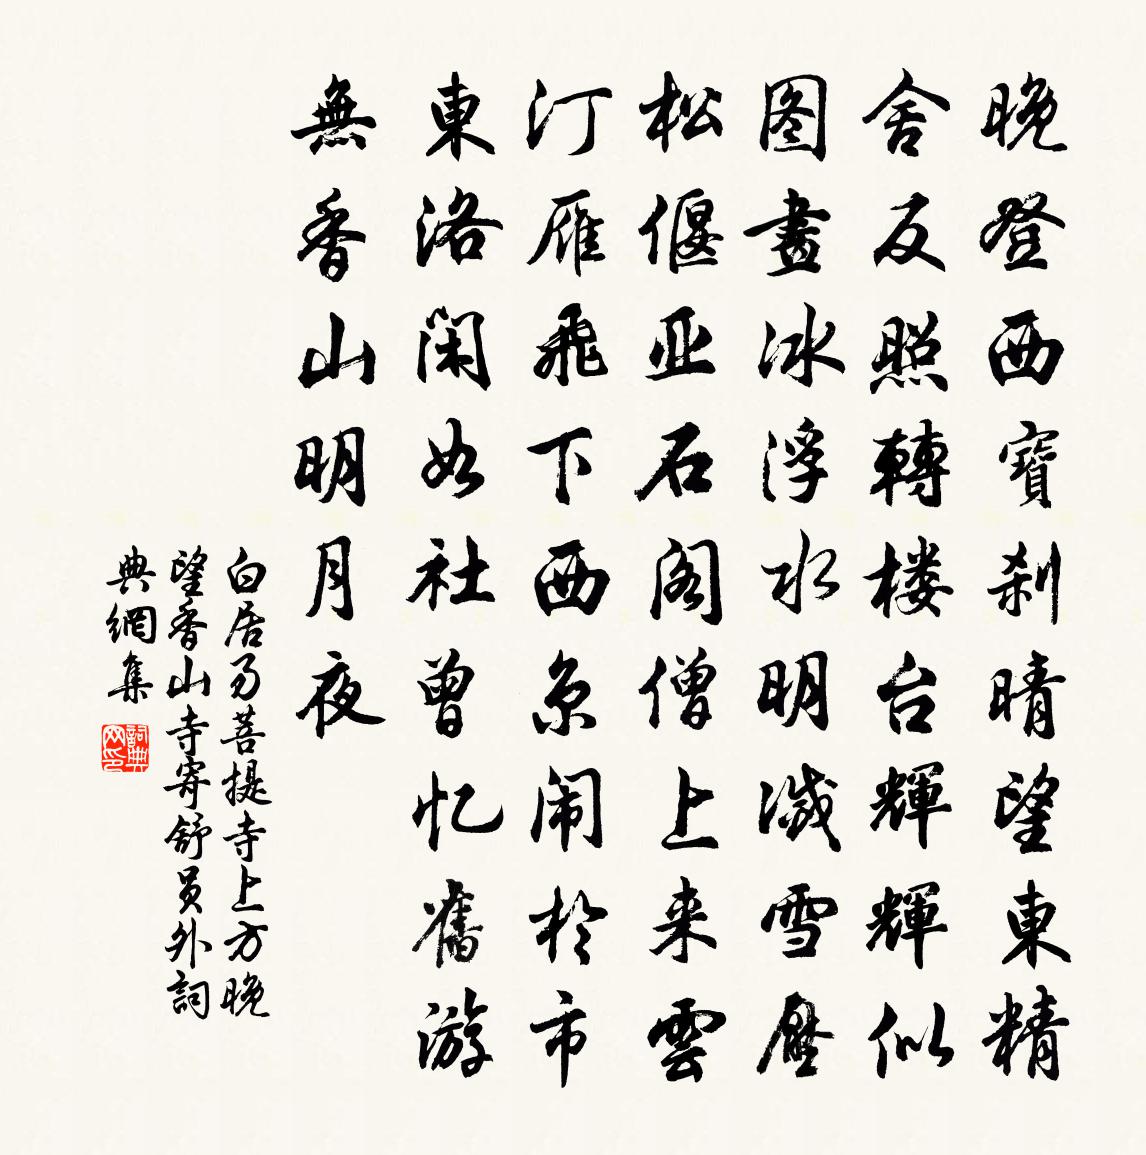 晚登西寶刹晴望東精
舍反照轉楼台輝輝似
图畫冰浮水明滅雪壓
松偃亚石阁僧上来雲
汀雁飛下西京闹於市
東洛闲如社曾忆舊游
無香山明月夜
白居易菩提寺上方晚
望香山寺寄舒员外詞
典網集
詞典网印